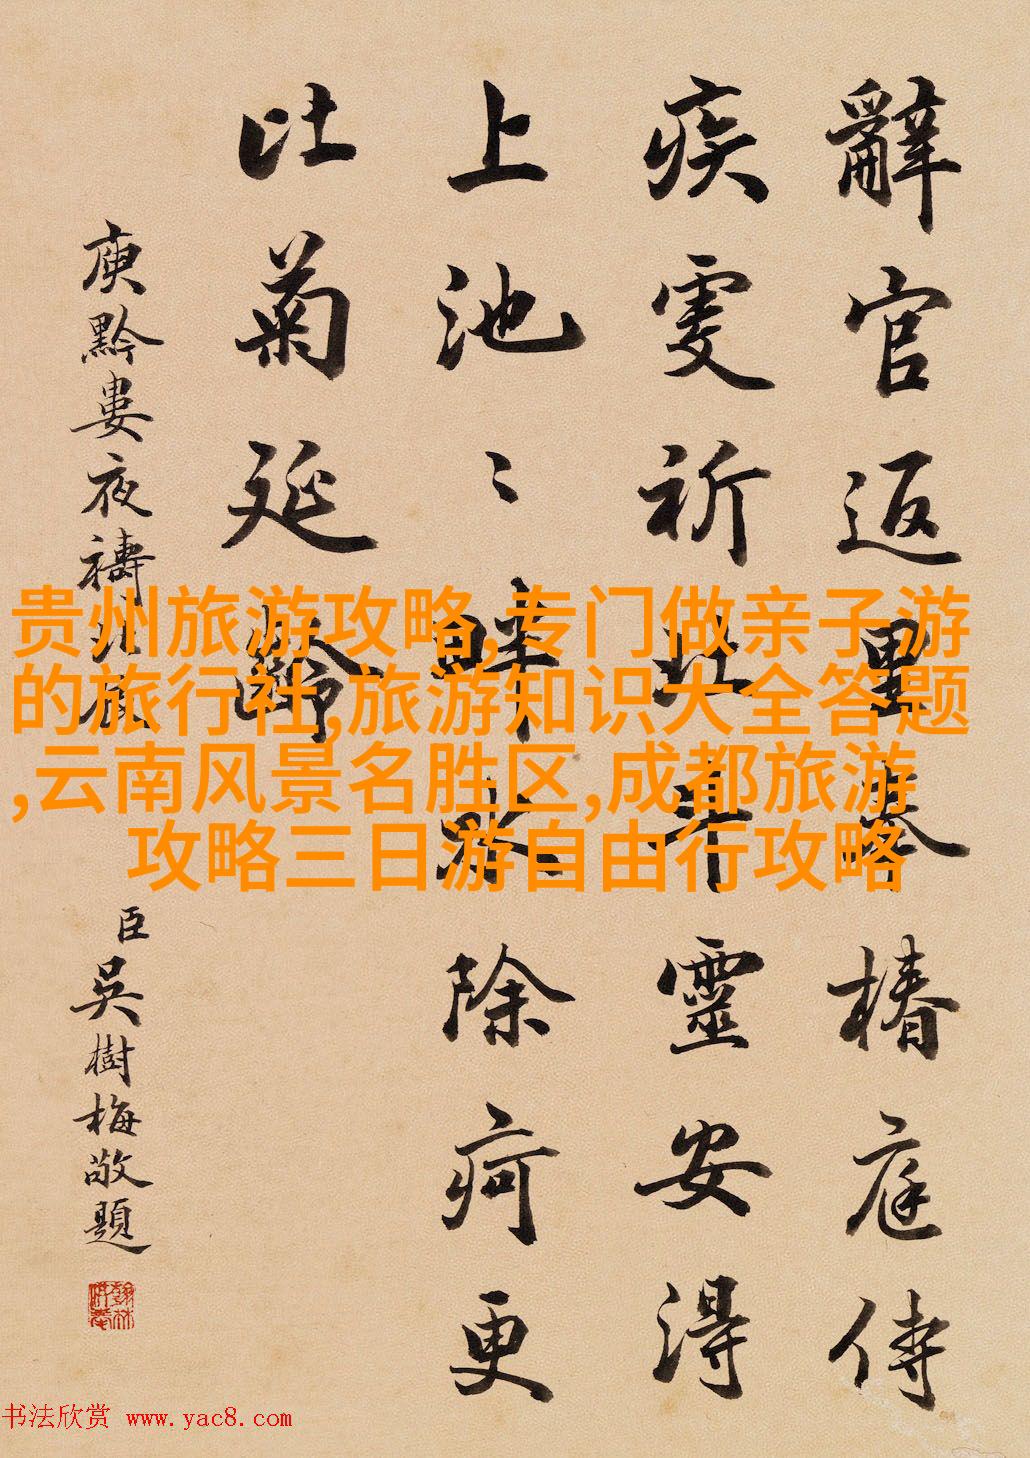 辭官返里奉椿庭侍
疾虔祈北斗靈安得
上池〻畔水除疴更
比菊延齡
庾黔婁夜禱北辰
臣吳樹梅敬題
翰林供奉
贵州旅游攻略,专门做亲子游
的旅行社,旅游知识大全答题
,云南风景名胜区,成都旅游
攻略三日游自由行攻略
书法欣赏 www.yac8.com